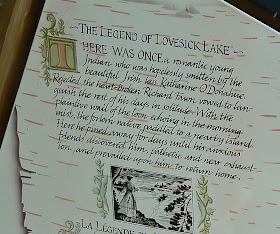 THE LEGEND OF LOVESICK LAKE
THERE WAS ONCE a romantic young
Indian who was hopelessly smitten by the
beautiful Irish lass Katharine O'Donahue.
Rejected, the heart-broken Richard Fawn vowed to lan-
guish the rest of his days in solitude. With the
plaintive wail of the loon echoing in the morning
mist, the forlorn native paddled to a nearby island.
Here he pined away for days until his anxious
friends discovered him, pathetic and near exhaust-
ion, and prevailed upon him to return home.
LA LÉGENDE